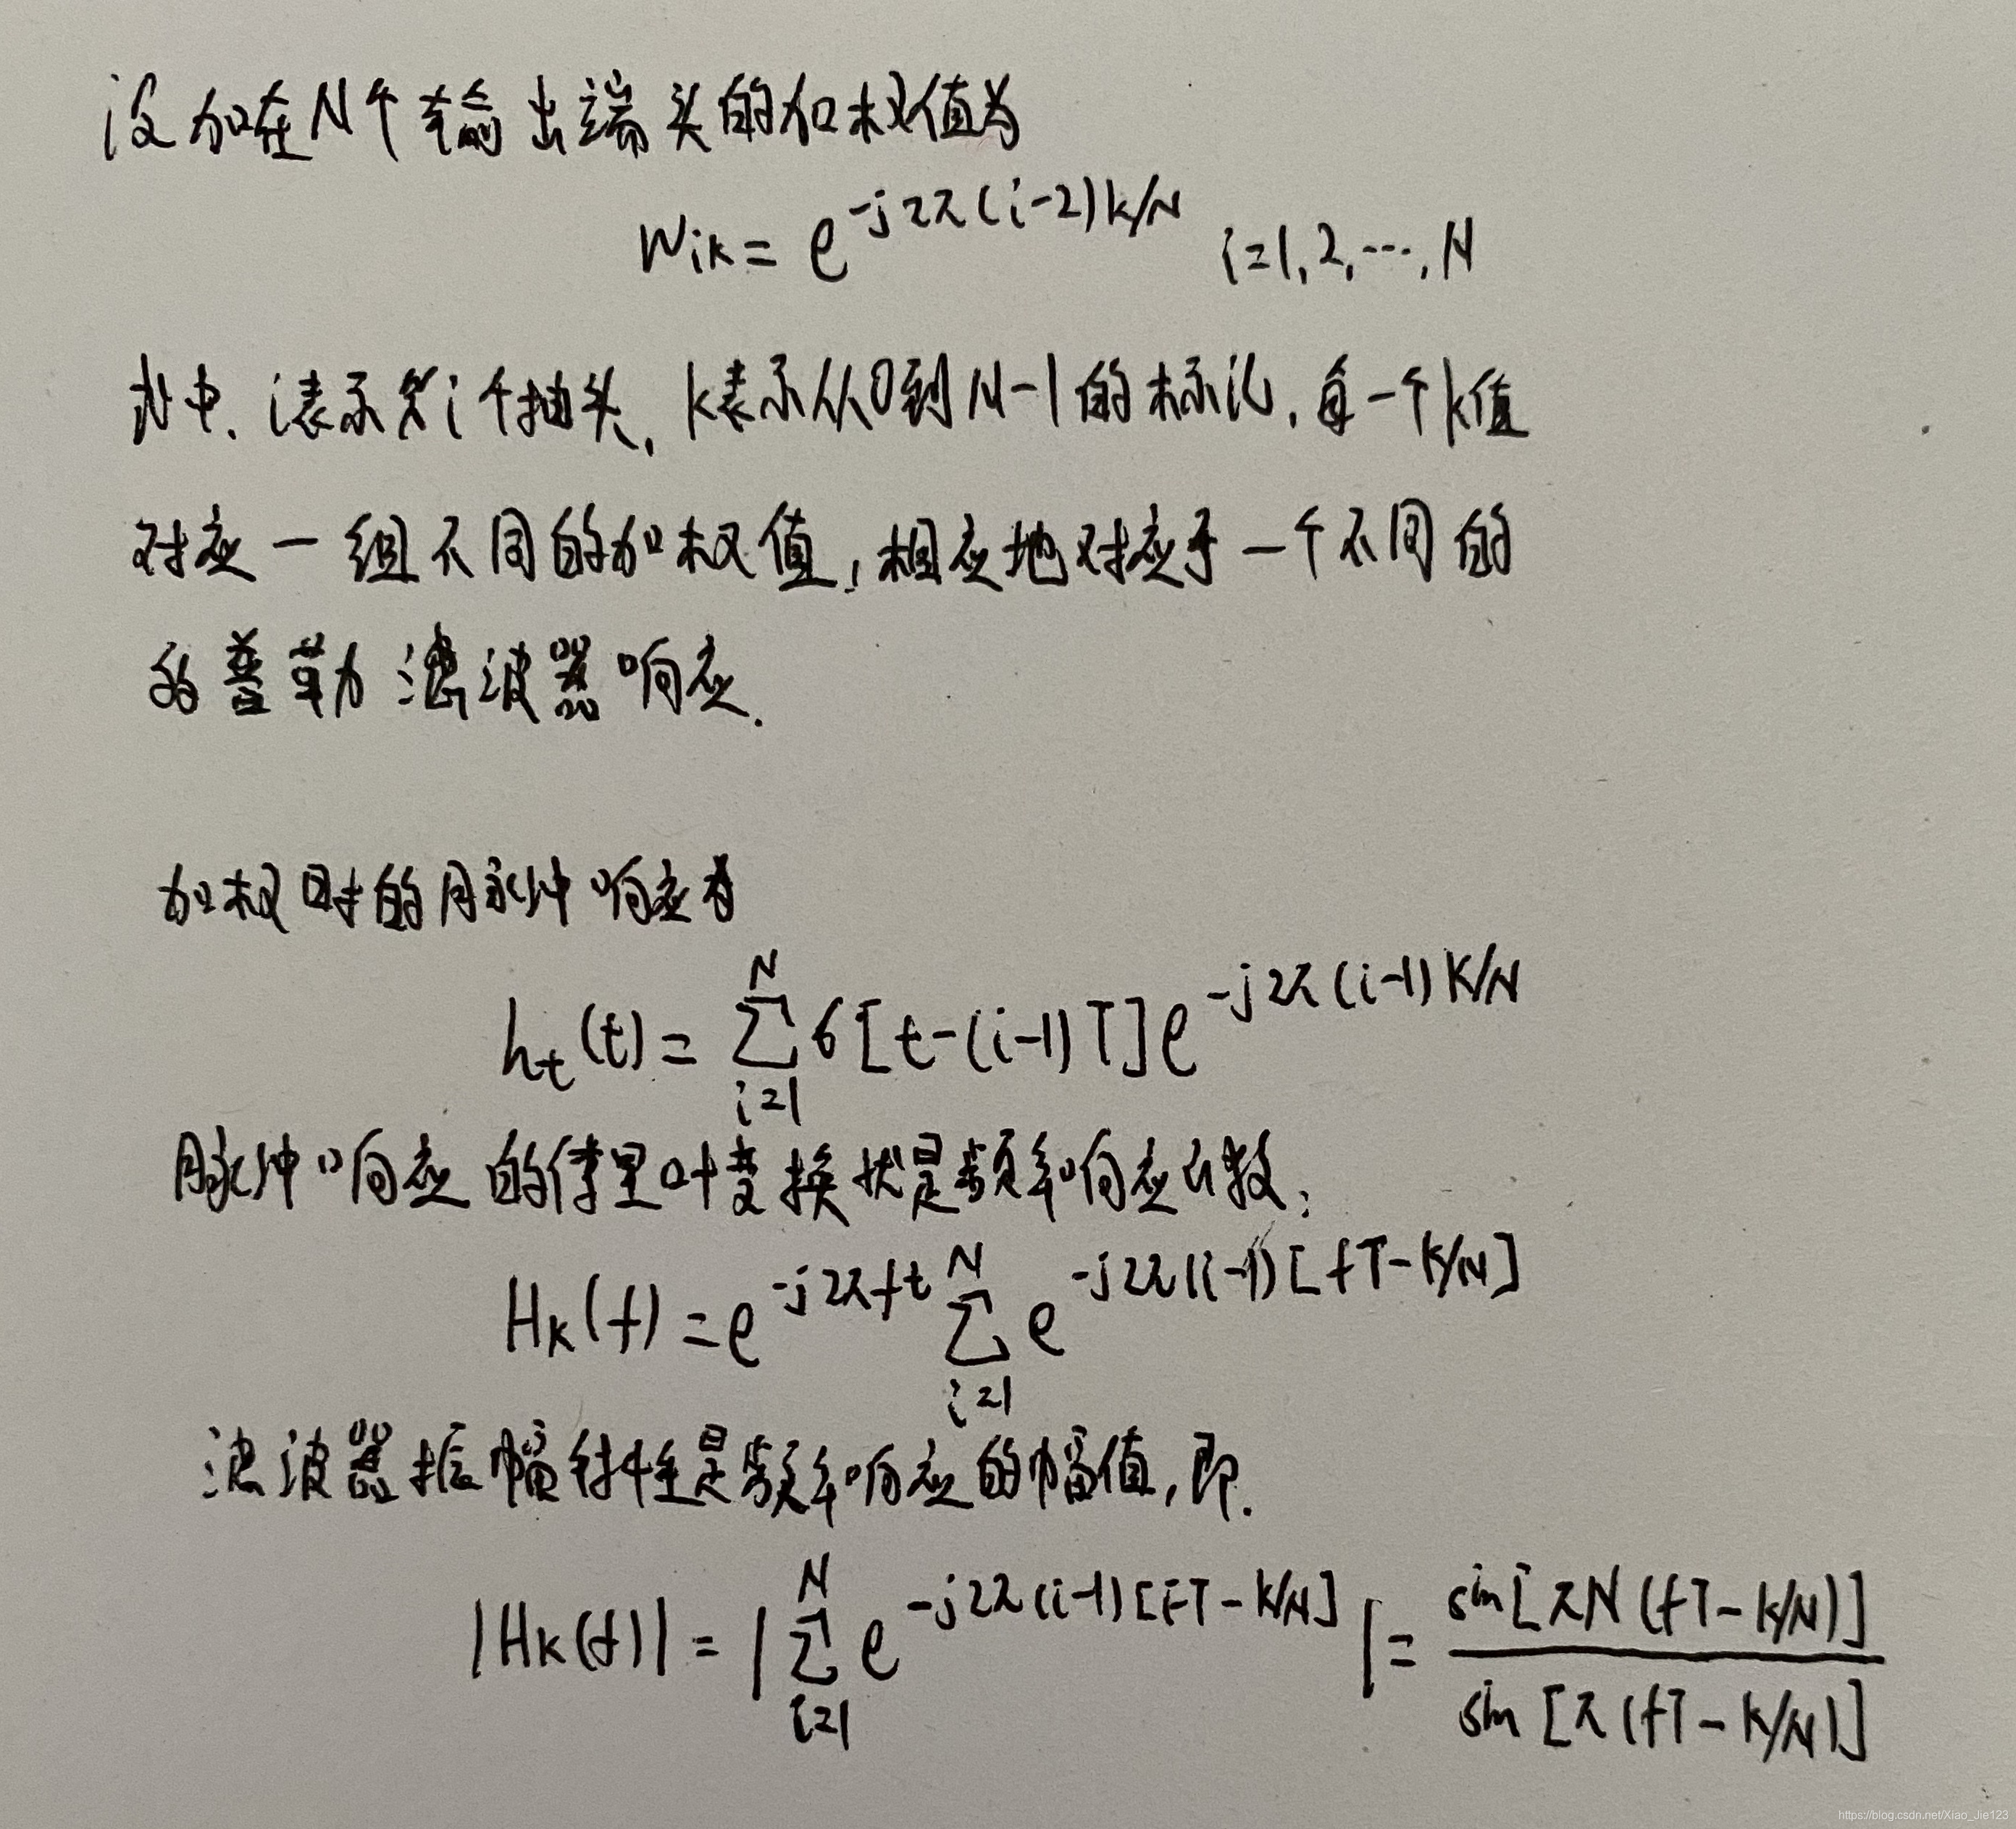 设加在N个输出端头的加权值为
Wik = e^{-j2π(i-2)k/N} i=1,2,…,N
式中. i表示第i个抽头, k表示从0到N-1的标记, 每一个k值
对应一组不同的加权值, 相应地对应于一个不同的
的普勒滤波器响应.
加权时的脉冲响应为
h_t(t) = \sum_{i=1}^{N} δ[t-(i-1)T]e^{-j2π(i-1)K/N}
脉冲响应的傅里叶变换状是频率响应函数:
H_K(f) = e^{-j2πft} \sum_{i=1}^{N} e^{-j2π(i-1)[fT-K/N]}
滤波器振幅特性是频率响应的幅值, 即.
|H_K(f)| = |\sum_{i=1}^{N} e^{-j2π(i-1)[fT-K/N]}| = \frac{sin[πN(fT-K/N)]}{sin[π(fT-K/N)]}
https://blog.csdn.net/Xiao_Jie123